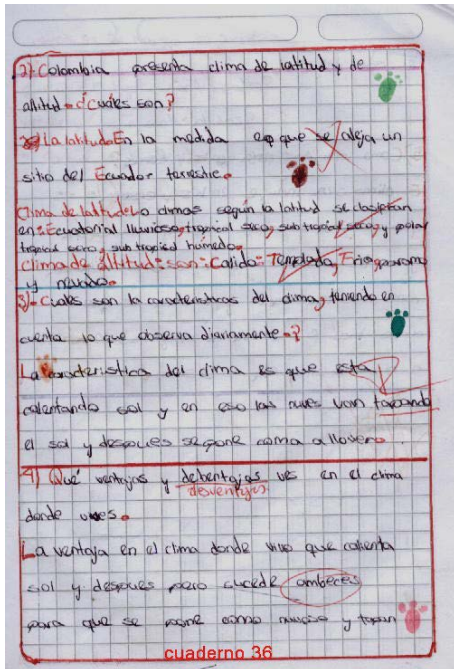 2) Colombia presenta clima de latitud y de
altitud. ¿Cuáles son?
La latitud: En la medida en que se aleja un
sitio del Ecuador terrestre.
Clima de latitud: Lo climas según la latitud se clasifican
en: Ecuatorial lluvioso, tropical seco, sub tropical seco, y polar
tropical seco, sub tropical humedo.
clima de altitud: son: Calido: Templado, Frio, paramo
y nevado.
3) Cuales son la caracteristicas del clima, teniendo en
cuenta lo que observa diariamente.?
La caracteristica del clima es que esta
calentando sol y en eso las nuves van tapando
el sol y despues se pone coma a llover.
4) Qué ventajas y debentajas ves en el clima
desventajas
donde vives.
La ventaja en el clima donde vivo que calienta
sol y despues pero sucede ambeces
para que se pone como y tapan
cuaderno 36